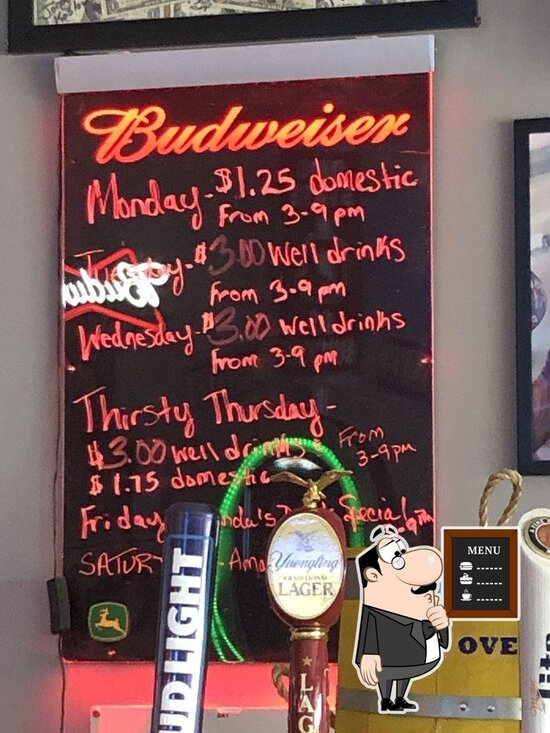 Budweiser
Monday - $1.25 domestic
From 3-9 pm
$3.00 Well drinks
From 3-9 pm
Wednesday - $3.00 well drinks
From 3-9 pm
Thirsty Thursday -
$3.00 well drinks
From
3-9pm
$1.75 domestic
Friday Special
SATUR
Yuengling
TRADITIONAL
LAGER
LAG
UD LIGHT
MENU
OVE